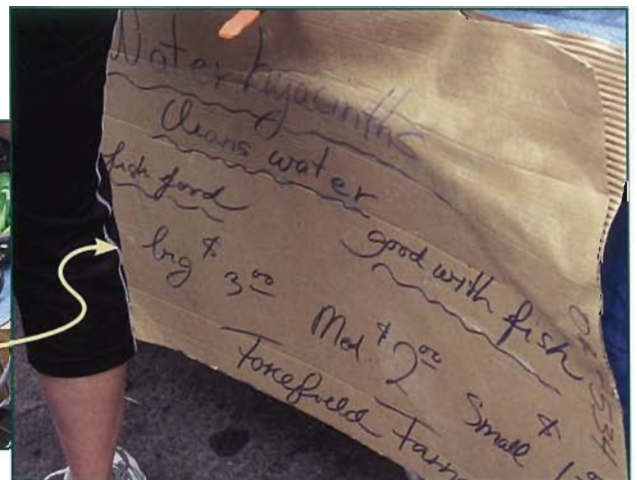 Water hyacinths
Cleans water
fish food
good with fish
lng $ 3.00
Med $ 2.00
Small $ 1.00
Forcefield Farm